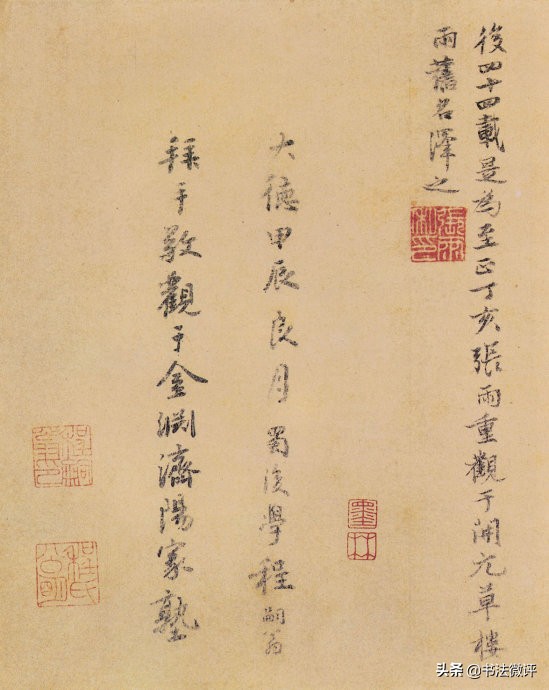 後四十四載是為至正丁亥張雨重觀于開元草樓
雨舊名澤之
大德甲辰良月蜀後學程嗣翁
拜手敬觀于金淵濟陽家塾
頭条 @书法微评